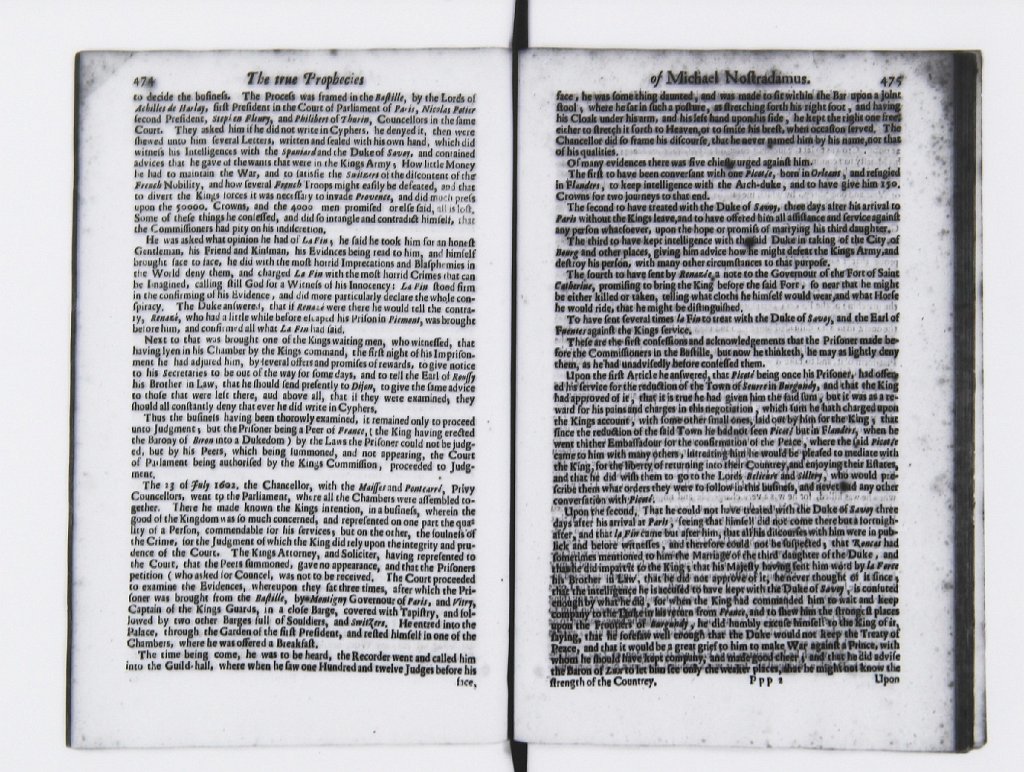 474 The true Prophecies
to decide the business. The Process was framed in the Bastille, by the Lords of
Achilles de Harlay, first President in the Court of Parliament of Paris, Nicolas Potier
second President, Stephen Fleury, and Philibert of Thurin, Councellors in the same
Court. They asked him if he did not write in Cyphers, he denyed it, then were
shewed unto him several Letters, written and sealed with his own hand, which did
witness his Intelligences with the Spaniard and the Duke of Savoy, and contained
advices that he gave of the wants that were in the Kings Army; How little Money
he had to maintain the War, and to satisfie the Switzers of the discontent of the
French Nobility, and how several French Troops might easily be defeated, and that
to divert the Kings forces it was necessary to invade Provence, and did much press
upon the 50000. Crowns, and the 4000 men promised or else said, all is lost.
Some of these things he confessed, and did so intangle and contradict himself, that
the Commissioners had pity on his indiscretion.
He was asked what opinion he had of La Fin; he said he took him for an honest
Gentleman, his Friend and Kinsman, his Evidences being read to him, and himself
brought face to face, he did with the most horrid Imprecations and Blasphemies in
the World deny them, and charged La Fin with the most horrid Crimes that can
be Imagined, calling still God for a Witness of his Innocency: La Fin stood firm
in the confirming of his Evidence, and did more particularly declare the whole con-
spiracy. The Duke answered, that if Renazé were there he would tell the contra-
ry, Renazé, who had a little while before escaped his Prison in Piemont, was brought
before him, and confirmed all what La Fin had said.
Next to that was brought one of the Kings waiting men, who witnessed, that
having lyen in his Chamber by the Kings command, the first night of his Imprison-
ment he had adjured him, by several offers and promises of rewards, to give notice
to his Secretaries to be out of the way for some days, and to tell the Earl of Roussy
his Brother in Law, that he should send presently to Dijon, to give the same advice
to those that were left there, and above all, that if they were examined, they
should all constantly deny that ever he did write in Cyphers.
Thus the business having been thorowly examined, it remained only to proceed
unto Judgment; but the Prisoner being a Peer of France, (the King having erected
the Barony of Biron into a Dukedom) by the Laws the Prisoner could not be judg-
ed, but by his Peers, which being summoned, and not appearing, the Court
of Parlament being authorised by the Kings Commission, proceeded to Judg-
ment.
The 23 of July 1602, the Chancellor, with the Maisset and Pontcarré, Privy
Councellors, went to the Parliament, where all the Chambers were assembled to-
gether. There he made known the Kings intention, in a business, wherein the
good of the Kingdom was so much concerned, and represented on one part the qua-
lity of a Person, commendable for his services; but on the other, the foulness of
the Crime, for the Judgment of which the King did rely upon the integrity and pru-
dence of the Court. The Kings Attorney, and Soliciter, having represented to
the Court, that the Peers summoned, gave no appearance, and that the Prisoners
petition (who asked for Councel, was not to be received. The Court proceeded
to examine the Evidences, whereupon they sat three times, after which the Pri-
soner was brought from the Bastille, by Montigny Governour of Paris, and Vitry,
Captain of the Kings Guards, in a close Barge, covered with Tapistry, and fol-
lowed by two other Barges full of Souldiers, and Switzers. He entred into the
Palace, through the Garden of the first President, and rested himself in one of the
Chambers, where he was offered a Breakfast.
The time being come, he was to be heard, the Recorder went and called him
into the Guild-hall, where when he saw one Hundred and twelve Judges before his
face,
of Michael Nostradamus. 475
face, he was something daunted, and was made to sit within the Bar upon a joint
stool; where he sat in such a posture, as stretching forth his right foot, and having
his Cloak under his arm, and his left hand upon his side, he kept the right one free
either to stretch it forth to Heaven, or to smite his brest, when occasion served. The
Chancellor did so frame his discourse, that he never named him by his name, nor that
of his qualities.
Of many evidences there was five chiefly urged against him.
The first to have been conversant with one Picoté, born in Orleans, and refugied
in Flanders, to keep intelligence with the Arch-duke, and to have give him 150.
Crowns for two journeys to that end.
The second to have treated with the Duke of Savoy, three days after his arrival to
Paris without the Kings leave, and to have offered him all assistance and service against
any person whatsoever, upon the hope or promise of marrying his third daughter.
The third to have kept intelligence with the said Duke in taking of the City of
Bourg and other places, giving him advice how he might defeat the Kings Army, and
destroy his person, with many other circumstances to that purpose.
The fourth to have sent by Renazée, a note to the Governour of the Fort of Saint
Catherine, promising to bring the King before the said Fort, so near that he might
be either killed or taken, telling what cloths he himself would wear, and what Horse
he would ride, that he might be distinguished.
To have sent several times la Fin to treat with the Duke of Savoy, and the Earl of
Fuentes against the Kings service.
These are the first confessions and acknowledgements that the Prisoner made be-
fore the Commissioners in the Bastille, but now he thinketh, he may as lightly deny
them, as he had unadvisedly before confessed them.
Upon the first Article he answered, that Picoté being once his Prisoner, had offer-
ed his service for the reduction of the Town of Seurre in Burgundy, and that the King
had approved of it; that it is true he had given him the said sum, but it was as a re-
ward for his pains and charges in this negotiation, which sum he hath charged upon
the Kings account, with some other small ones, laid out by him for the King; that
since the reduction of the said Town he had not seen Picoté but in Flanders, when he
went thither Embassadour for the confirmation of the Peace, where the said Picoté
came to him with many others, intreating him he would be pleased to mediate with
the King, for the liberty of returning into their Countrey, and enjoying their Estates,
and that he did wish them to go to the Lords Believre and Sillery, who would pre-
scribe them what orders they were to follow in this business, and never had any other
conversation with Picoté.
Upon the second, That he could not have treated with the Duke of Savoy three
days after his arrival at Paris, seeing that himself did not come there but a fortnight
after, and that la Fin came but after him, that all his discourses with him were in pub-
lick and before witnesses, and therefore could not be suspected; that Roncas had
sometimes mentioned to him the Marriage of the third daughter of the Duke, and
that he did impart it to the King; that his Majesty having sent him word by La Force
his Brother in Law, that he did not approve of it, he never thought of it since,
that the intelligence he is accused to have kept with the Duke of Savoy, is confuted
enough by what he did, for when the King had commanded him to wait and keep
company to the Duke in his return from France, and to shew him the strongest places
upon the Frontiers of Burgundy, he did humbly excuse himself to the King of it,
saying, that he foresaw well enough that the Duke would not keep the Treaty of
Peace, and that it would be a great grief to him to make War against a Prince, with
whom he should have kept company, and made good cheer; and that he did advise
the Baron of Lux to let him see only the weaker places, that he might not know the
strength of the Countrey.
Ppp 2 Upon